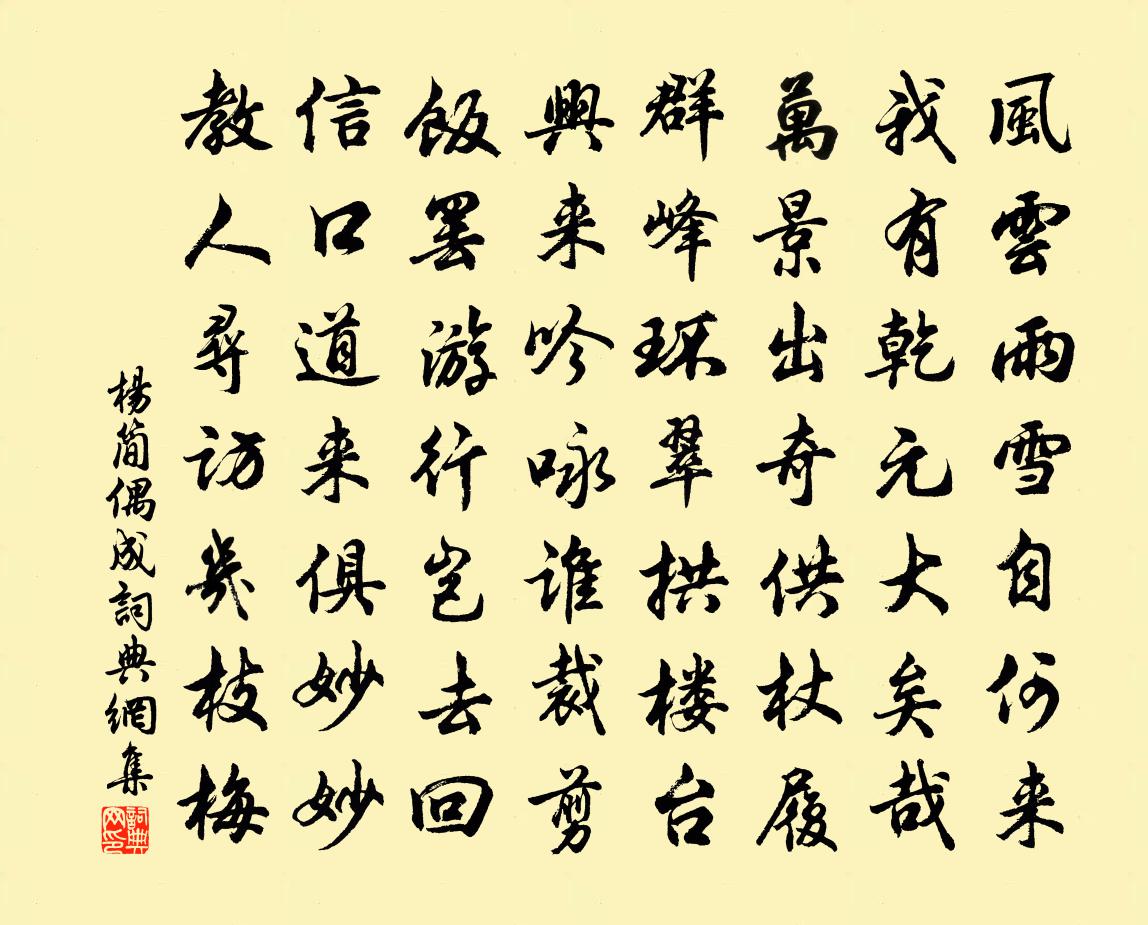 風雲雨雪自何来
我有乾元大矣哉
萬景出奇供杖履
群峰环翠拱楼台
興来吟咏谁裁剪
飯罢游行岂去回
信口道来俱妙妙
教人尋访幾枝梅
楊简偶成詞典網集
詞典网印